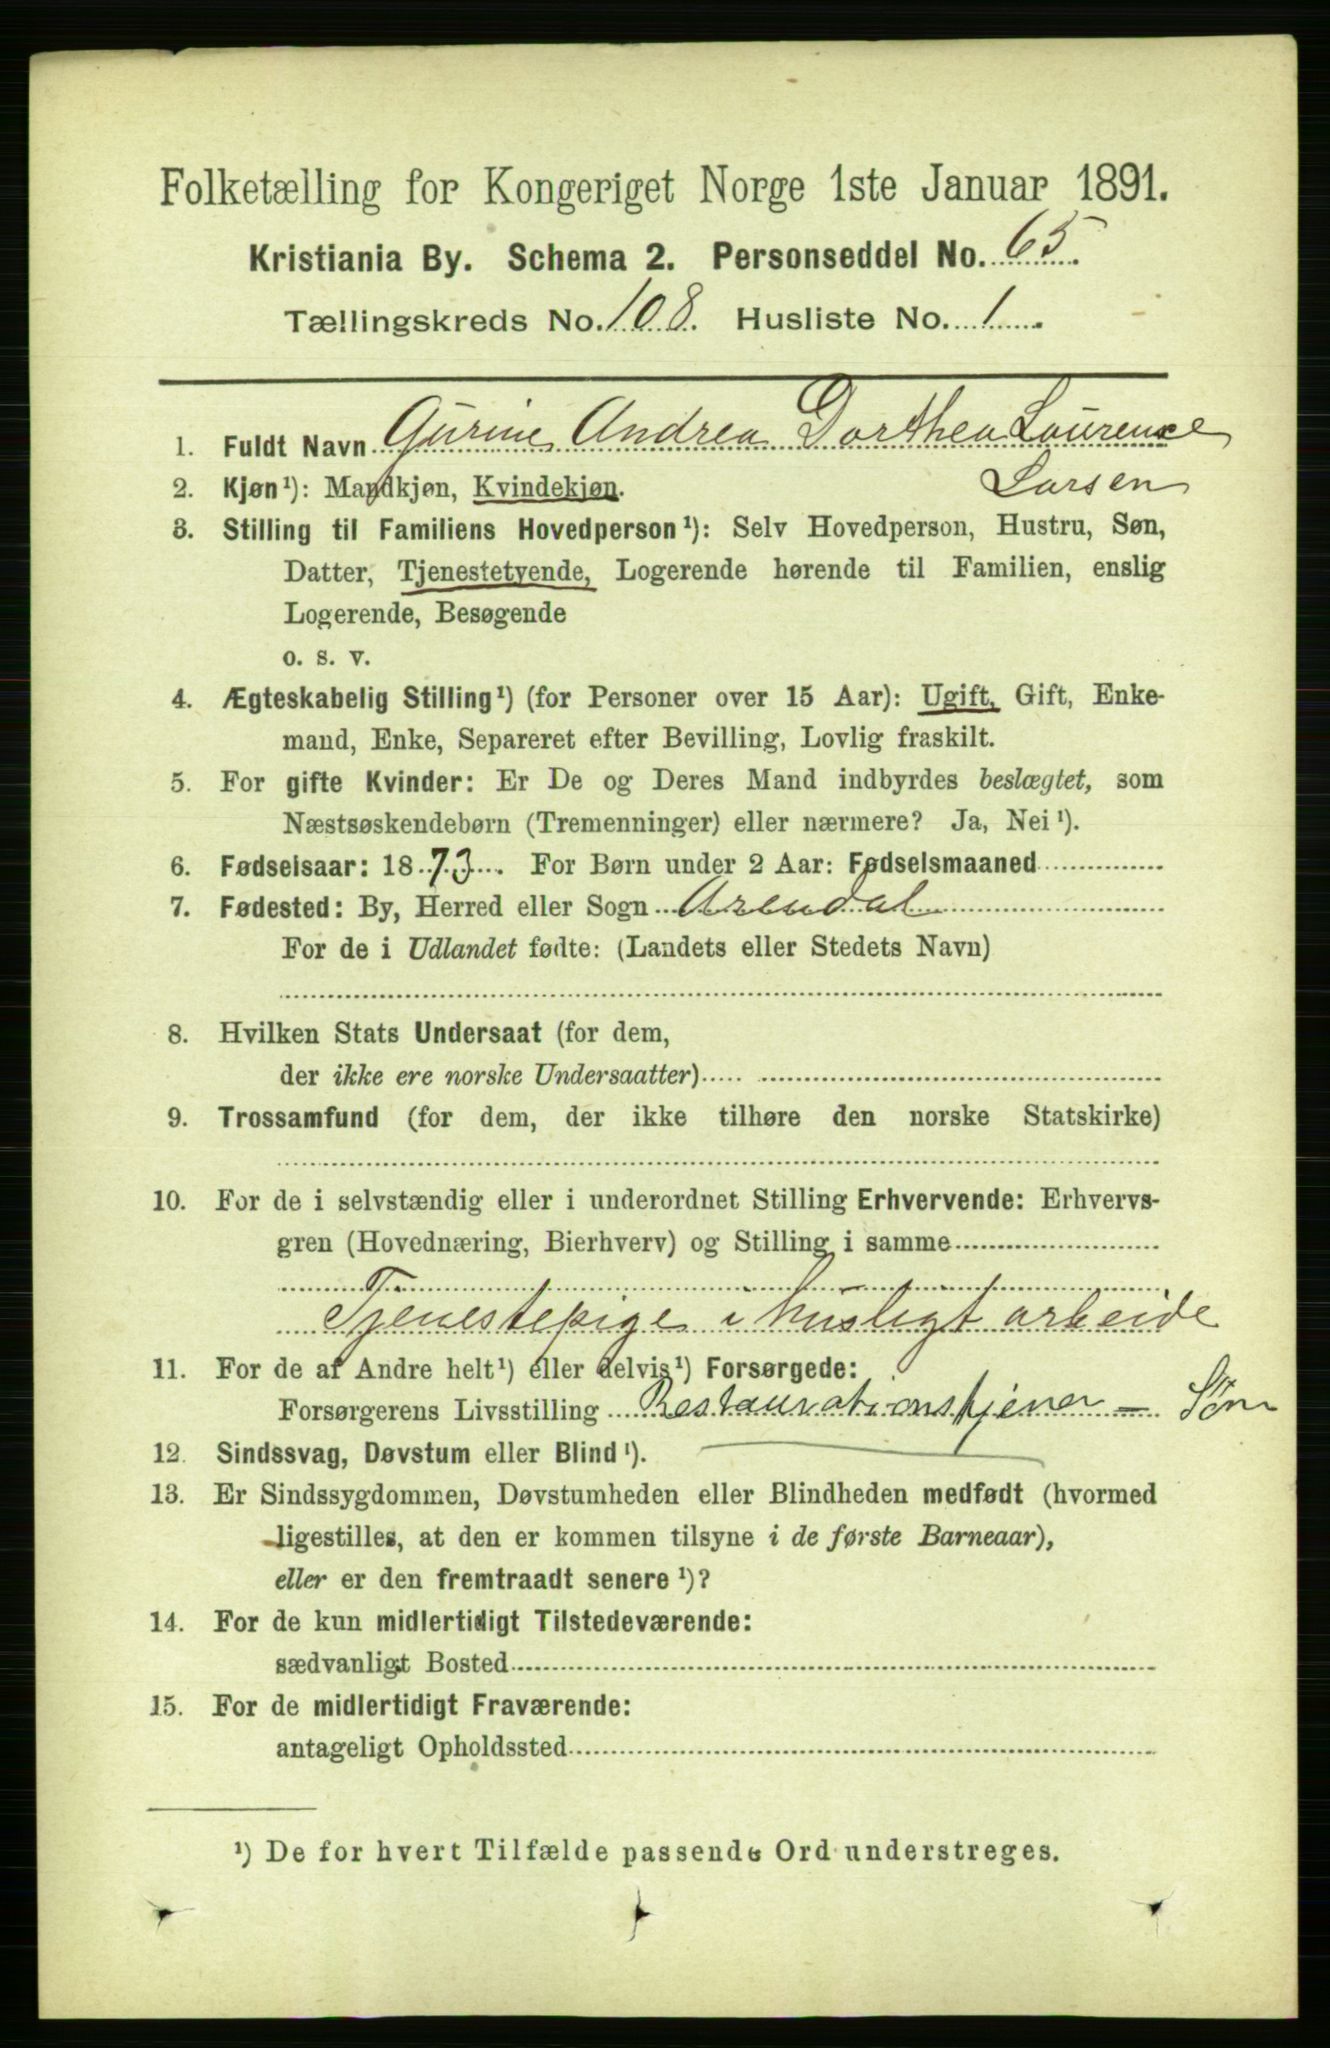 Folketælling for Kongeriget Norge 1ste Januar 1891.
Kristiania By. Schema 2. Personseddel No. 65.
Tællingskreds No. 108. Husliste No. 1.
1. Fuldt Navn Gurine Andrea Dorthea Laurence
Larsen
2. Kjøn¹): Mandkjøn, Kvindekjøn.
3. Stilling til Familiens Hovedperson¹): Selv Hovedperson, Hustru, Søn,
Datter, Tjenestetyende, Logerende hørende til Familien, enslig
Logerende, Besøgende
o. s. v.
4. Ægteskabelig Stilling¹) (for Personer over 15 Aar): Ugift, Gift, Enke-
mand, Enke, Separeret efter Bevilling, Lovlig fraskilt.
5. For gifte Kvinder: Er De og Deres Mand indbyrdes beslægtet, som
Næstsøskendebørn (Tremenninger) eller nærmere? Ja, Nei¹).
6. Fødselsaar: 1873. For Børn under 2 Aar: Fødselsmaaned
7. Fødested: By, Herred eller Sogn Arendal
For de i Udlandet fødte: (Landets eller Stedets Navn)
8. Hvilken Stats Undersaat (for dem,
der ikke ere norske Undersaatter)
9. Trossamfund (for dem, der ikke tilhøre den norske Statskirke)
10. For de i selvstændig eller i underordnet Stilling Erhvervende: Erhvervs-
gren (Hovednæring, Bierhverv) og Stilling i samme
Tjenestepige i husligt arbeide
11. For de af Andre helt¹) eller delvis¹) Forsørgede:
Forsørgerens Livsstilling Restaurationstjener -
12. Sindssvag, Døvstum eller Blind¹).
13. Er Sindssygdommen, Døvstumheden eller Blindheden medfødt (hvormed
ligestilles, at den er kommen tilsyne i de første Barneaar),
eller er den fremtraadt senere¹)?
14. For de kun midlertidigt Tilstedeværende:
sædvanligt Bosted
15. For de midlertidigt Fraværende:
antageligt Opholdssted
¹) De for hvert Tilfælde passende Ord understreges.